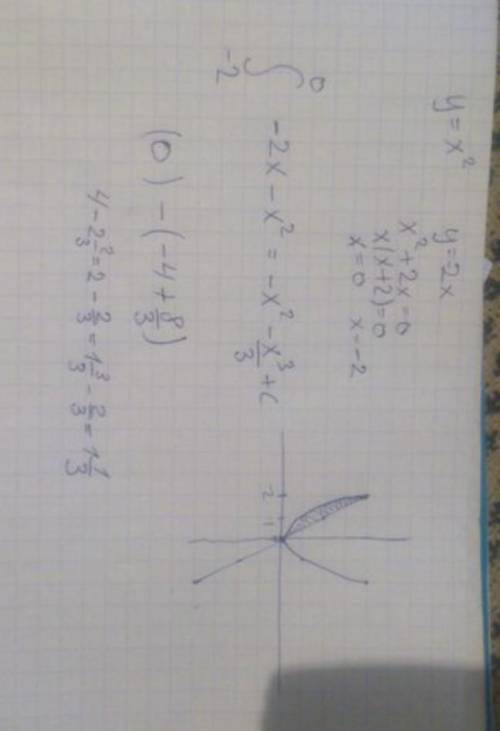 y = x² y = 2x
x² + 2x = 0
x(x+2) = 0
x = 0 x = -2
∫₋₂⁰ -2x - x² = -x² - x³/3 + C
(0) - (-4 + 8/3)
4 - 2 2/3 = 2 - 2/3 = 1 3/3 - 2/3 = 1 1/3
2 1